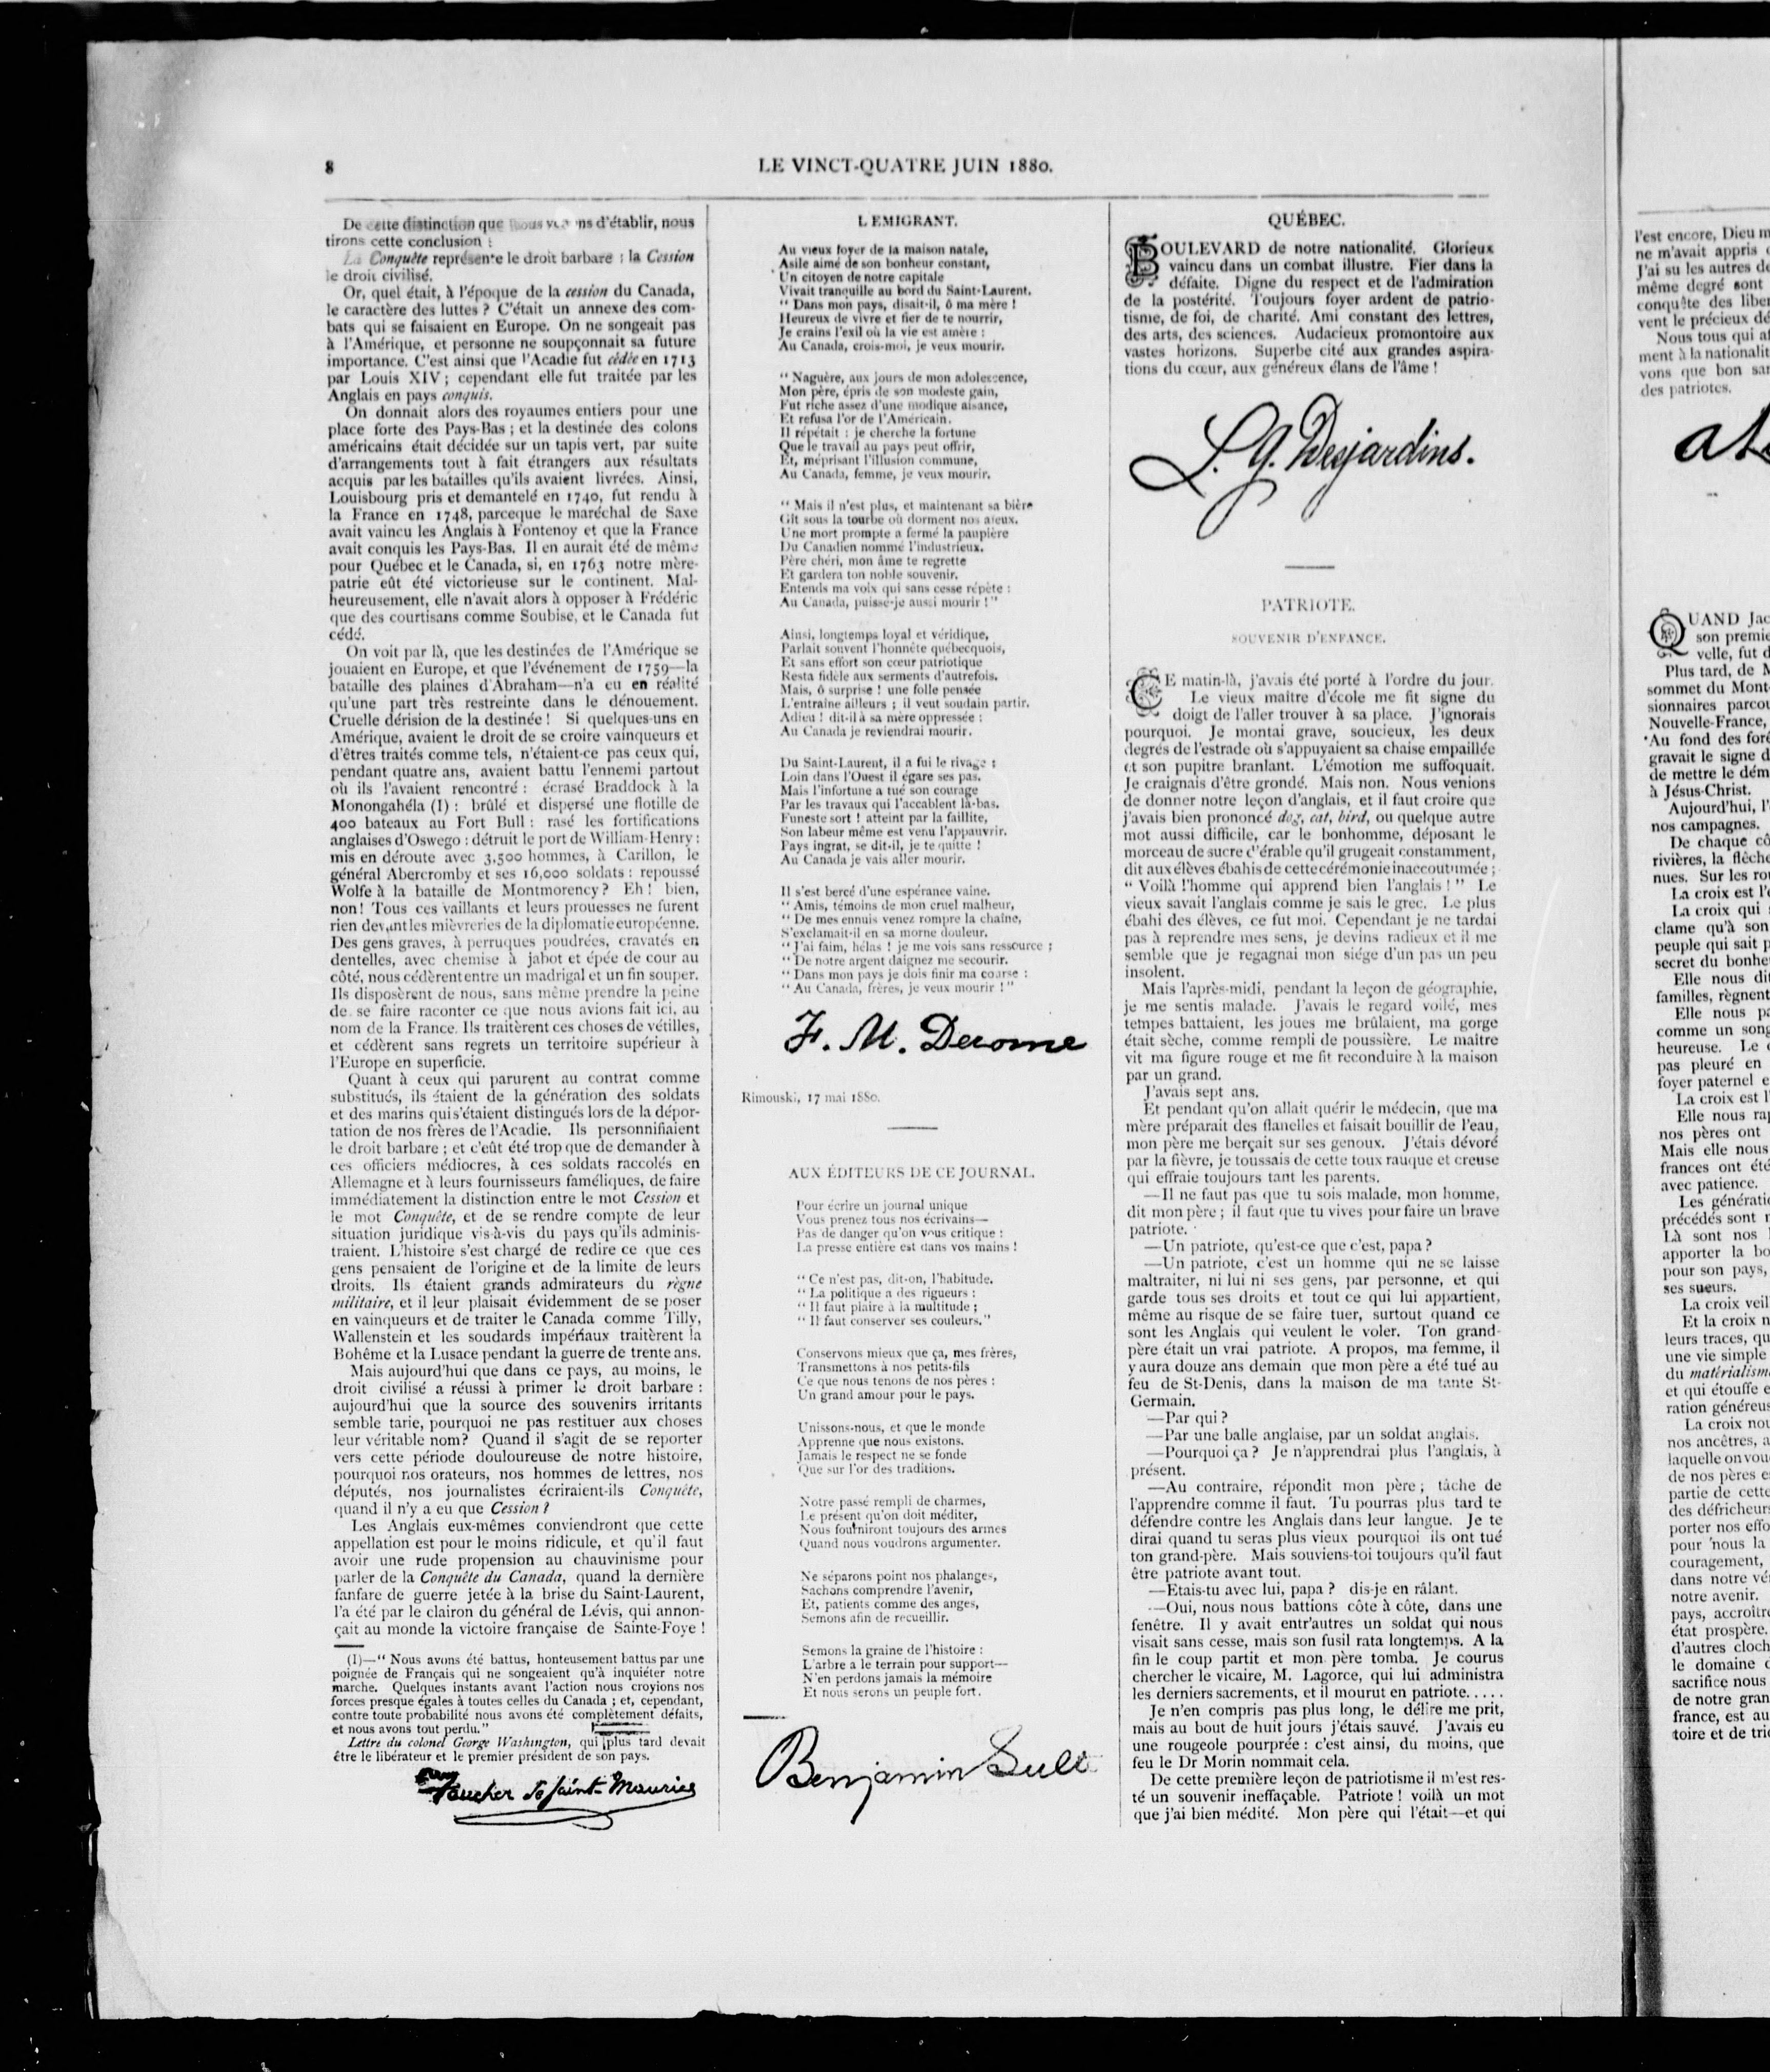 8
LE VINCT-QUATRE JUIN 1880.
De cette distinction que nous venons d'établir, nous
tirons cette conclusion :
La Conquête représente le droit barbare : la Cession
le droit civilisé.
Or, quel était, à l'époque de la cession du Canada,
le caractère des luttes ? C'était un annexe des com-
bats qui se faisaient en Europe. On ne songeait pas
à l'Amérique, et personne ne soupçonnait sa future
importance. C'est ainsi que l'Acadie fut cédée en 1713
par Louis XIV ; cependant elle fut traitée par les
Anglais en pays conquis.
On donnait alors des royaumes entiers pour une
place forte des Pays-Bas ; et la destinée des colons
américains était décidée sur un tapis vert, par suite
d'arrangements tout à fait étrangers aux résultats
acquis par les batailles qu'ils avaient livrées. Ainsi,
Louisbourg pris et demantelé en 1740, fut rendu à
la France en 1748, parceque le maréchal de Saxe
avait vaincu les Anglais à Fontenoy et que la France
avait conquis les Pays-Bas. Il en aurait été de même
pour Québec et le Canada, si, en 1763 notre mère-
patrie eût été victorieuse sur le continent. Mal-
heureusement, elle n'avait alors à opposer à Frédéric
que des courtisans comme Soubise, et le Canada fut
cédé.
On voit par là, que les destinées de l'Amérique se
jouaient en Europe, et que l'événement de 1759—la
bataille des plaines d'Abraham—n'a eu en réalité
qu'une part très restreinte dans le dénouement.
Cruelle dérision de la destinée ! Si quelques-uns en
Amérique, avaient le droit de se croire vainqueurs et
d'êtres traités comme tels, n'étaient-ce pas ceux qui,
pendant quatre ans, avaient battu l'ennemi partout
où ils l'avaient rencontré : écrasé Braddock à la
Monongahéla (1) : brûlé et dispersé une flotille de
400 bateaux au Fort Bull : rasé les fortifications
anglaises d'Oswego : détruit le port de William-Henry :
mis en déroute avec 3,500 hommes, à Carillon, le
général Abercromby et ses 16,000 soldats : repoussé
Wolfe à la bataille de Montmorency ? Eh ! bien,
non ! Tous ces vaillants et leurs prouesses ne furent
rien devant les mièvreries de la diplomatie européenne.
Des gens graves, à perruques poudrées, cravatés en
dentelles, avec chemise à jabot et épée de cour au
côté, nous cédèrent entre un madrigal et un fin souper.
Ils disposèrent de nous, sans même prendre la peine
de se faire raconter ce que nous avions fait ici, au
nom de la France. Ils traitèrent ces choses de vétilles,
et cédèrent sans regrets un territoire supérieur à
l'Europe en superficie.
Quant à ceux qui parurent au contrat comme
substitués, ils étaient de la génération des soldats
et des marins qui s'étaient distingués lors de la dépor-
tation de nos frères de l'Acadie. Ils personnifiaient
le droit barbare ; et c'eût été trop que de demander à
ces officiers médiocres, à ces soldats raccolés en
Allemagne et à leurs fournisseurs faméliques, de faire
immédiatement la distinction entre le mot Cession et
le mot Conquête, et de se rendre compte de leur
situation juridique vis-à-vis du pays qu'ils adminis-
traient. L'histoire s'est chargé de redire ce que ces
gens pensaient de l'origine et de la limite de leurs
droits. Ils étaient grands admirateurs du règne
militaire, et il leur plaisait évidemment de se poser
en vainqueurs et de traiter le Canada comme Tilly,
Wallenstein et les soudards impériaux traitèrent la
Bohême et la Lusace pendant la guerre de trente ans.
Mais aujourd'hui que dans ce pays, au moins, le
droit civilisé a réussi à primer le droit barbare :
aujourd'hui que la source des souvenirs irritants
semble tarie, pourquoi ne pas restituer aux choses
leur véritable nom? Quand il s'agit de se reporter
vers cette période douloureuse de notre histoire,
pourquoi nos orateurs, nos hommes de lettres, nos
députés, nos journalistes écriraient-ils Conquête,
quand il n'y a eu que Cession ?
Les Anglais eux-mêmes conviendront que cette
appellation est pour le moins ridicule, et qu'il faut
avoir une rude propension au chauvinisme pour
parler de la Conquête du Canada, quand la dernière
fanfare de guerre jetée à la brise du Saint-Laurent,
l'a été par le clairon du général de Lévis, qui annon-
çait au monde la victoire française de Sainte-Foye !
(1)—" Nous avons été battus, honteusement battus par une
poignée de Français qui ne songeaient qu'à inquiéter notre
marche. Quelques instants avant l'action nous croyions nos
forces presque égales à toutes celles du Canada ; et, cependant,
contre toute probabilité nous avons été complètement défaits,
et nous avons tout perdu."
Lettre du colonel George Washington, qui plus tard devait
être le libérateur et le premier président de son pays.
Faucher de Saint-Maurice
L'EMIGRANT.
Au vieux foyer de la maison natale,
Asile aimé de son bonheur constant,
Un citoyen de notre capitale
Vivait tranquille au bord du Saint-Laurent.
" Dans mon pays, disait-il, ô ma mère !
Heureux de vivre et fier de te nourrir,
Je crains l'exil où la vie est amère :
Au Canada, crois-moi, je veux mourir.
" Naguère, aux jours de mon adolescence,
Mon père, épris de son modeste gain,
Fut riche assez d'une modique aisance,
Et refusa l'or de l'Américain.
Il répétait : je cherche la fortune
Que le travail au pays peut offrir,
Et, méprisant l'illusion commune,
Au Canada, femme, je veux mourir.
" Mais il n'est plus, et maintenant sa bière
Gît sous la tourbe où dorment nos aïeux.
Une mort prompte a fermé la paupière
Du Canadien nommé l'industrieux.
Père chéri, mon âme te regrette
Et gardera ton noble souvenir.
Entends ma voix qui sans cesse répète :
Au Canada, puisse-je aussi mourir ! "
Ainsi, longtemps loyal et véridique,
Parlait souvent l'honnête québecquois,
Et sans effort son cœur patriotique
Resta fidèle aux serments d'autrefois.
Mais, ô surprise ! une folle pensée
L'entraîne ailleurs ; il veut soudain partir.
Adieu ! dit-il à sa mère oppressée :
Au Canada je reviendrai mourir.
Du Saint-Laurent, il a fui le rivage ;
Loin dans l'Ouest il égare ses pas.
Mais l'infortune a tué son courage
Par les travaux qui l'accablent là-bas.
Funeste sort ! atteint par la faillite,
Son labeur même est venu l'appauvrir.
Pays ingrat, se dit-il, je te quitte !
Au Canada je vais aller mourir.
Il s'est bercé d'une espérance vaine.
" Amis, témoins de mon cruel malheur,
" De mes ennuis venez rompre la chaîne,
S'exclamait-il en sa morne douleur.
" J'ai faim, hélas ! je me vois sans ressource ;
" De notre argent daignez me secourir.
" Dans mon pays je dois finir ma course :
" Au Canada, frères, je veux mourir ! "
F. M. Derome
Rimouski, 17 mai 1880.
AUX ÉDITEURS DE CE JOURNAL.
Pour écrire un journal unique
Vous prenez tous nos écrivains—
Pas de danger qu'on vous critique :
La presse entière est dans vos mains !
" Ce n'est pas, dit-on, l'habitude.
" La politique a des rigueurs :
" Il faut plaire à la multitude ;
" Il faut conserver ses couleurs."
Conservons mieux que ça, mes frères,
Transmettons à nos petits-fils
Ce que nous tenons de nos pères :
Un grand amour pour le pays.
Unissons-nous, et que le monde
Apprenne que nous existons.
Jamais le respect ne se fonde
Que sur l'or des traditions.
Notre passé rempli de charmes,
Le présent qu'on doit méditer,
Nous fourniront toujours des armes
Quand nous voudrons argumenter.
Ne séparons point nos phalanges,
Sachons comprendre l'avenir,
Et, patients comme des anges,
Semons afin de recueillir.
Semons la graine de l'histoire :
L'arbre a le terrain pour support—
N'en perdons jamais la mémoire
Et nous serons un peuple fort.
Benjamin Sulte
QUÉBEC.
BOULEVARD de notre nationalité. Glorieux
vaincu dans un combat illustre. Fier dans la
défaite. Digne du respect et de l'admiration
de la postérité. Toujours foyer ardent de patrio-
tisme, de foi, de charité. Ami constant des lettres,
des arts, des sciences. Audacieux promontoire aux
vastes horizons. Superbe cité aux grandes aspira-
tions du cœur, aux généreux élans de l'âme !
L. G. Desjardins.
PATRIOTE.
SOUVENIR D'ENFANCE.
CE matin-là, j'avais été porté à l'ordre du jour.
Le vieux maître d'école me fit signe du
doigt de l'aller trouver à sa place. J'ignorais
pourquoi. Je montai grave, soucieux, les deux
degrés de l'estrade où s'appuyaient sa chaise empaillée
et son pupitre branlant. L'émotion me suffoquait.
Je craignais d'être grondé. Mais non. Nous venions
de donner notre leçon d'anglais, et il faut croire que
j'avais bien prononcé dog, cat, bird, ou quelque autre
mot aussi difficile, car le bonhomme, déposant le
morceau de sucre d'érable qu'il grugeait constamment,
dit aux élèves ébahis de cette cérémonie inaccoutumée ;
" Voilà l'homme qui apprend bien l'anglais ! " Le
vieux savait l'anglais comme je sais le grec. Le plus
ébahi des élèves, ce fut moi. Cependant je ne tardai
pas à reprendre mes sens, je devins radieux et il me
semble que je regagnai mon siége d'un pas un peu
insolent.
Mais l'après-midi, pendant la leçon de géographie,
je me sentis malade. J'avais le regard voilé, mes
tempes battaient, les joues me brûlaient, ma gorge
était sèche, comme rempli de poussière. Le maître
vit ma figure rouge et me fit reconduire à la maison
par un grand.
J'avais sept ans.
Et pendant qu'on allait quérir le médecin, que ma
mère préparait des flanelles et faisait bouillir de l'eau,
mon père me berçait sur ses genoux. J'étais dévoré
par la fièvre, je toussais de cette toux rauque et creuse
qui effraie toujours tant les parents.
—Il ne faut pas que tu sois malade, mon homme,
dit mon père ; il faut que tu vives pour faire un brave
patriote.
—Un patriote, qu'est-ce que c'est, papa ?
—Un patriote, c'est un homme qui ne se laisse
maltraiter, ni lui ni ses gens, par personne, et qui
garde tous ses droits et tout ce qui lui appartient,
même au risque de se faire tuer, surtout quand ce
sont les Anglais qui veulent le voler. Ton grand-
père était un vrai patriote. A propos, ma femme, il
y aura douze ans demain que mon père a été tué au
feu de St-Denis, dans la maison de ma tante St-
Germain.
—Par qui ?
—Par une balle anglaise, par un soldat anglais.
—Pourquoi ça ? Je n'apprendrai plus l'anglais, à
présent.
—Au contraire, répondit mon père ; tâche de
l'apprendre comme il faut. Tu pourras plus tard te
défendre contre les Anglais dans leur langue. Je te
dirai quand tu seras plus vieux pourquoi ils ont tué
ton grand-père. Mais souviens-toi toujours qu'il faut
être patriote avant tout.
—Etais-tu avec lui, papa ? dis-je en râlant.
—Oui, nous nous battions côte à côte, dans une
fenêtre. Il y avait entr'autres un soldat qui nous
visait sans cesse, mais son fusil rata longtemps. A la
fin le coup partit et mon père tomba. Je courus
chercher le vicaire, M. Lagorce, qui lui administra
les derniers sacrements, et il mourut en patriote.....
Je n'en compris pas plus long, le délire me prit,
mais au bout de huit jours j'étais sauvé. J'avais eu
une rougeole pourprée : c'est ainsi, du moins, que
feu le Dr Morin nommait cela.
De cette première leçon de patriotisme il m'est res-
té un souvenir ineffaçable. Patriote ! voilà un mot
que j'ai bien médité. Mon père qui l'était—et qui
l'est encore, Dieu m
ne m'avait appris
J'ai su les autres de
même degré sont
conquête des liber
vent le précieux dé
Nous tous qui a
ment à la nationalit
vons que bon san
des patriotes.
QUAND Jac
son premie
velle, fut d
Plus tard, de M
sommet du Mont
sionnaires parcou
Nouvelle-France,
Au fond des forê
gravait le signe d
de mettre le dém
à Jésus-Christ.
Aujourd'hui, l'
nos campagnes.
De chaque cô
rivières, la flèche
nues. Sur les rou
La croix est l'
La croix qui
clame qu'à son
peuple qui sait p
secret du bonheu
Elle nous dit
familles, règnent
Elle nous pa
comme un song
heureuse. Le
pas pleuré en
foyer paternel e
La croix est l'
Elle nous rap
nos pères ont
Mais elle nous
frances ont été
avec patience.
Les génératio
précédés sont
Là sont nos
apporter la bo
pour son pays,
ses sueurs.
La croix veil
Et la croix n
leurs traces, qu
une vie simple
du matérialism
et qui étouffe e
ration généreus
La croix nou
nos ancêtres, a
laquelle on vou
de nos pères e
partie de cette
des défricheurs
porter nos effo
pour nous la
couragement,
dans notre vé
notre avenir.
pays, accroître
état prospère.
d'autres cloch
le domaine d
sacrifice nous
de notre gran
france, est au
toire et de tri